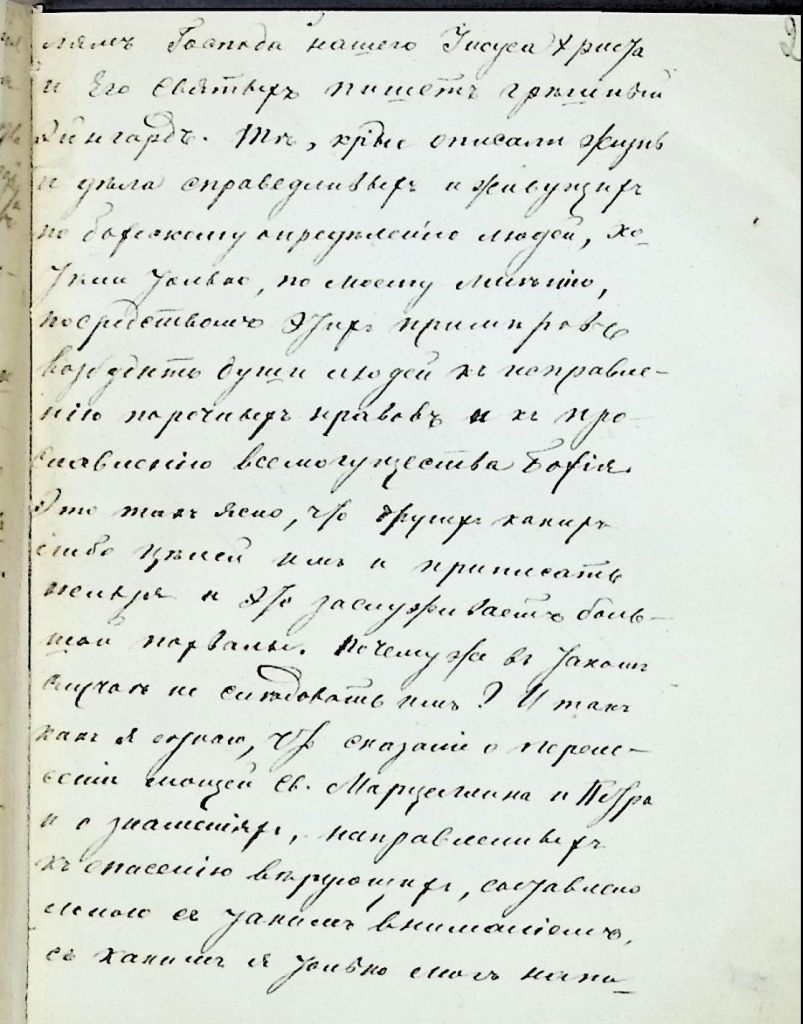 2
лямъ Господа нашего Іисуса Христа
и Его Святыхъ пишетъ грѣшный
Эйнгардъ. Тѣ, кр̃ые описали жизнь
и дѣла справедливыхъ и живущихъ
по божескому опредѣленію людей, хо-
тѣли только, по моему мнѣнію,
посредствомъ этихъ примѣровъ
возбудить души людей къ исправле-
нію порочныхъ нравовъ и къ про-
славленію всемогущества Божія.
Это такъ ясно, что другихъ какихъ
либо цѣлей имъ и приписать
нельзя и это заслуживаетъ боль-
шой похвалы. Почему же въ такомъ
случаѣ не слѣдовать имъ? И такъ
какъ я сознаю, что сказаніе о перене-
сеніи мощей Св. Марцеллина и Петра
и о знаменіяхъ, направленныхъ
къ спасенію вѣрующихъ, составлено
мною съ такимъ вниманіемъ,
съ какимъ я только могъ напи-